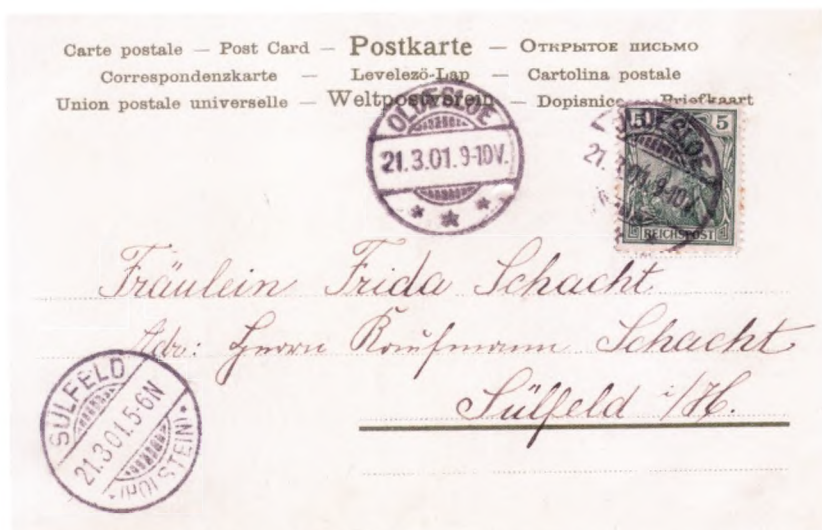 Carte postale — Post Card — Postkarte — Открытое письмо
Correspondenzkarte — Levelező-Lap — Cartolina postale
Union postale universelle — Weltpostverein — Dopisnice — Briefkaart
OLDESLOE
21.3.01.9-10V.
* * *
5 5
REICHSPOST
OLDESLOE
21.3.01.9-10V.
Fräulein Frida Schacht
Adr: Herrn Kaufmann Schacht
Sülfeld i/H.
SÜLFELD
21.3.01.5-6N
*(HOLSTEIN)*